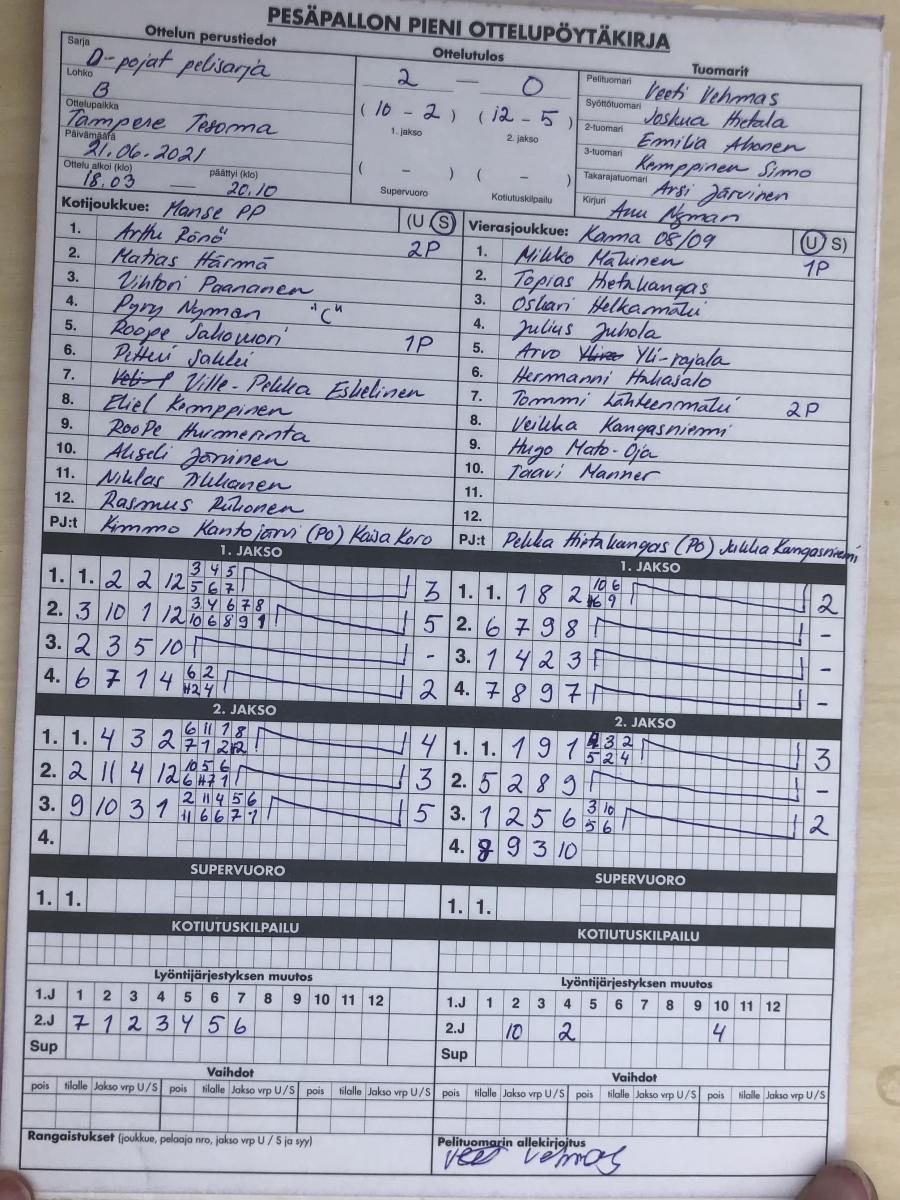 PESÄPALLON PIENI OTTELUPÖYTÄKIRJA
Ottelun perustiedot
Sarja D-pojat pelisarja
Lohko B
Ottelupaikka Tampere Tesoma
Päivämäärä 21.06.2021
Ottelu alkoi (klo) päättyi (klo)
18.03 — 20.10
Ottelutulos
2 — 0
(10 - 2) (12 - 5)
1. jakso 2. jakso
( - ) ( - )
Supervuoro Kotiutuskilpailu
Tuomarit
Pelituomari Veeti Vehmas
Syöttötuomari Joskua Hietala
2-tuomari Emilia Ahonen
3-tuomari Kemppinen Simo
Takarajatuomari Arsi Järvinen
Kirjuri Anu Nyman
Kotijoukkue: Manse PP (U S)
1. Arttu Rönö
2. Matias Härmä 2P
3. Vihtori Paananen
4. Pyry Nyman "C"
5. Roope 1P
6.
7. Ville-Pekka Eskelinen
8. Eliel Kemppinen
9. Roope Hurmerinta
10. Akseli Järvinen
11. Niklas Pikkanen
12. Rasmus
PJ:t Kimmo Kantojärvi (PO) Kaisa Koro
Vierasjoukkue: Kama 08/09 (U S)
1. Mikko Mäkinen 1P
2. Topias Hietakangas
3. Oskari Helkamäki
4. Julius Juhola
5. Arvo Yli-rajala
6. Hermanni Hakasalo
7. Tommi Lähteenmäki 2P
8. Veikka Kangasniemi
9. Hugo Mato-Oja
10. Taavi Manner
11.
12.
PJ:t Pekka Hietakangas (PO) Jukka Kangasniemi
1. JAKSO
1. 1. 2 2 12 3 4 5 3
5 6 7
2. 3 10 1 12 3 4 6 7 8 5
10 6 8 9 1
3. 2 3 5 10 -
4. 6 7 1 4 6 2 2
2 4
1. JAKSO
1. 1. 1 8 2 10 6 2
6 9
2. 6 7 9 8 -
3. 1 4 2 3 -
4. 7 8 9 7 -
2. JAKSO
1. 1. 4 3 2 6 11 7 8 4
7 1 2 12
2. 2 11 4 12 10 5 6 3
6 7 1
3. 9 10 3 1 2 11 4 5 6 5
11 6 6 7 1
4.
2. JAKSO
1. 1. 1 9 1 4 3 2 3
5 2 4
2. 5 2 8 9 -
3. 1 2 5 6 3 10 2
5 6
4. 8 9 3 10
SUPERVUORO
1. 1.
SUPERVUORO
1. 1.
KOTIUTUSKILPAILU
KOTIUTUSKILPAILU
Lyöntijärjestyksen muutos
1.J 1 2 3 4 5 6 7 8 9 10 11 12
2.J 7 1 2 3 4 5 6
Sup
Lyöntijärjestyksen muutos
1.J 1 2 3 4 5 6 7 8 9 10 11 12
2.J 10 2 4
Sup
Vaihdot
pois tilalle Jakso vrp U/S pois tilalle Jakso vrp U/S pois tilalle Jakso vrp U/S
Vaihdot
pois tilalle Jakso vrp U/S pois tilalle Jakso vrp U/S pois tilalle Jakso vrp U/S
Rangaistukset (joukkue, pelaaja nro, jakso vrp U / S ja syy)
Pelituomarin allekirjoitus
Veeti Vehmas